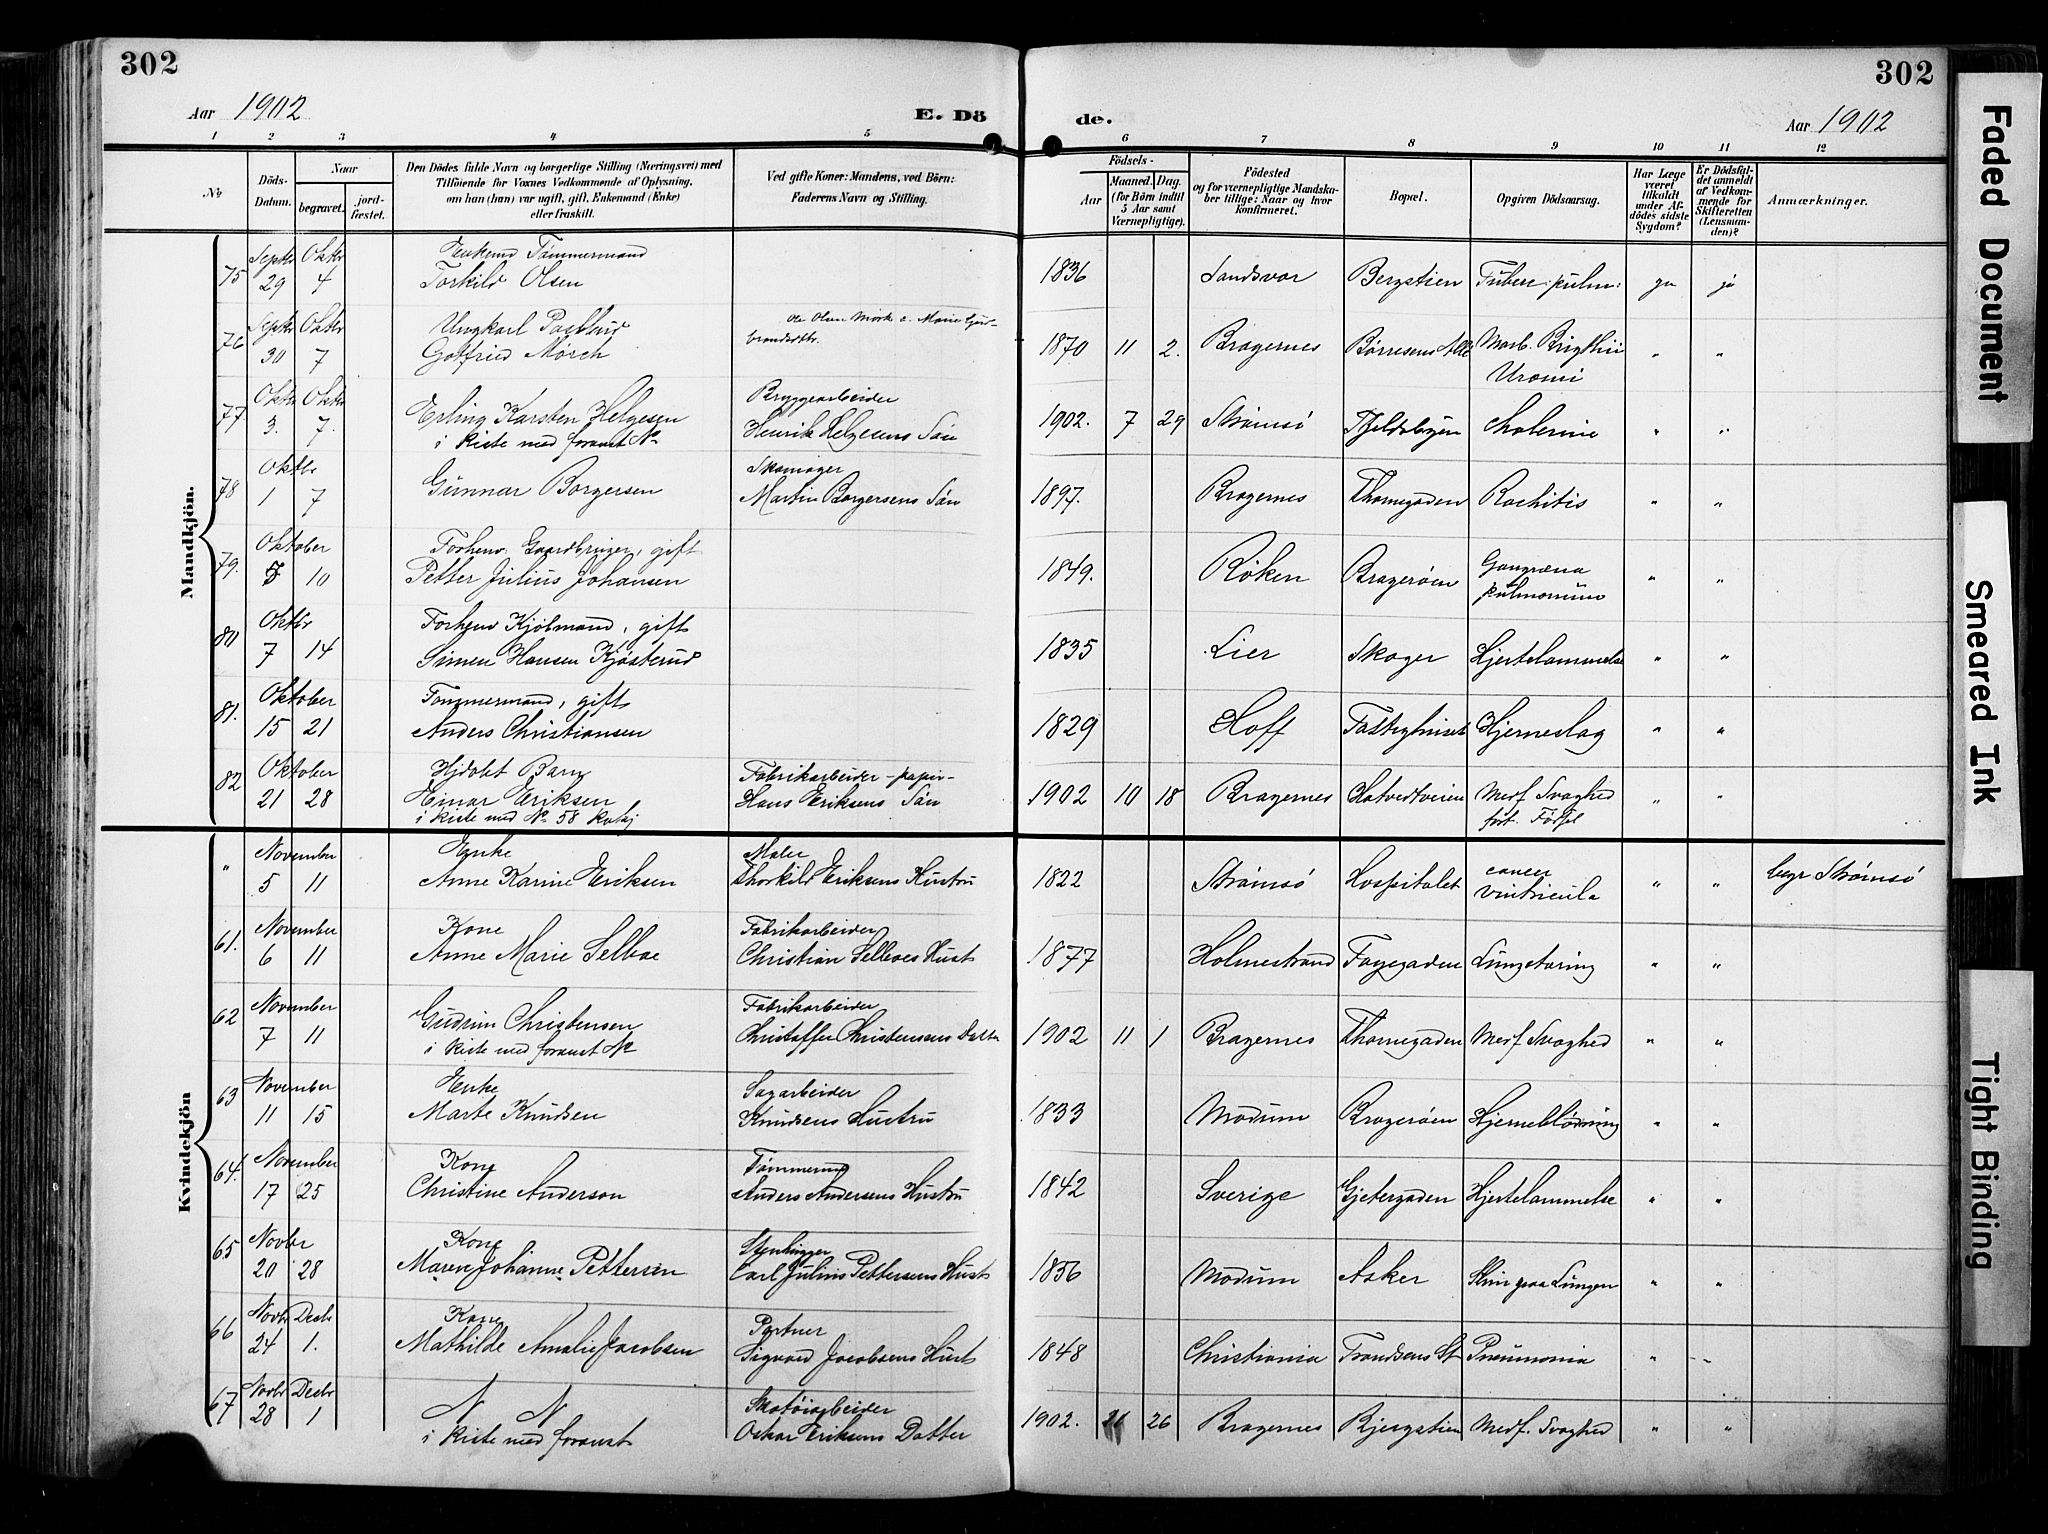 302
302
Aar 1902
E. Dö
de.
Aar 1902
1 2 3 4 5 6 7 8 9 10 11 12
No
Döds-Datum.
Naar
begravet.
jord-fæstet.
Den Dödes fulde Navn og borgerlige Stilling (Næringsvei) med
Tilföiende for Voxnes Vedkommende af Oplysning,
om han (hun) var ugift, gift, Enkemand (Enke)
eller fraskilt.
Ved gifte Koner: Mandens, ved Börn:
Faderens Navn og Stilling.
Födsels-
Aar
Maaned. Dag.
(for Börn indtil
5 Aar samt
Værnepligtige).
Födested
og for værnepligtige Mandska-
ber tillige: Naar og hvor
konfirmeret.
Bopæl.
Opgiven Dödsaarsag.
Har Læge
været
tilkaldt
under Af-
dödes sidste
Sygdom?
Er Dödsfal-
det anmeldt
af Vedkom-
mende for
Skifteretten
(Lensman-
den)?
Anmærkninger.
Mandkjön.
75 Septbr 29 Oktbr 4 Enkemd Tömmermand
Torkild Olsen 1836 Sandsvær Bergstien Tuberc. pulm: ja ja
76 Septbr 30 Oktbr 7 Ungkarl Postbud
Gotfried Mörch Ole Olsen Mörk o. Marie Gud-
brandsdtr. 1870 11 2. Bragernes Börresens Allé Morb. Brigthii
Uromi " "
77 Oktbr 3. Oktbr 7. Erling Karsten Helgesen
i kiste med foranst No Bryggearbeider
Henrik Helgesens Sön 1902. 7 29 Strömsö Fjeldsbyen Cholerine " "
78 Oktbr 1 7 Gunnar Borgersen Skomager
Martin Borgersens Sön 1897. Bragernes Thomegaden Rachitis " "
79. Oktober 10 Forhenv. Gaardbruger, gift
Petter Julius Johansen 1849. Röken Brageröen Gangræna
pulmonum " "
80 Oktbr 7 14 Forhenv Kjölmand, gift
Simen Hansen Kjösterud 1835 Lier Skoger Hjertelammelse " "
81. Oktober 15 21 Tömmermand, gift
Anders Christiansen 1829 Hoff Fattighuset Hjerneslag " "
82 Oktober 21 28 Hjdöbt Barn
Einar Eriksen
i kiste med No 58 Fabrikarbeider -papir-
Hans Eriksens Sön 1902 10 18 Bragernes Hotvedtveien Medf Svaghed
fort. Födsel " "
Kvindekjön
" November 5 11 Enke
Anne Karine Eriksen Maler
Thorkild Eriksens Hustru 1822 Strömsö Hospitalet cancer
vintricula " " begr Strömsö
61. November 6 11 Kone
Anne Marie Selboe Fabrikarbeider
Christian Selboes Hust 1877 Holmestrand Fayegaden Lungetæring " "
62 November 7 11 Gudrun Christensen
i kiste med foranst No Fabrikarbeider
Christoffer Christensens Datter 1902 11 1 Bragernes Thomegaden Medf Svaghed " "
63 November 11 15 Enke
Marte Knudsen Sagarbeider
Knudsens Hustru 1833 Modum Brageröen Hjerneblödning " "
64. November 17 25 Kone
Christine Anderson Tömmermd
Anders Andersens Hustru 1842 Sverige Gjetergaden Hjertelammelse " "
65 Novbr 20 28 Kone
Maren Johanne Pettersen Stenhugger
Carl Julius Pettersens Hust 1856 Modum Asker Slim paa Lungen " "
66 Novbr 24 Decbr 1. Kone
Mathilde Amalie Jacobsen Portner
Sigvard Jacobsens Hust 1848 Christiania Trondsens St Pneumonia " "
67 Novbr 28 Decbr 1 N N
i kiste med foranst Skotöiarbeider
Oskar Eriksens Datter 1902. 26 Bragernes Bjergstien Medf. Svaghed " "
Faded Document
Smeared Ink
Tight Binding